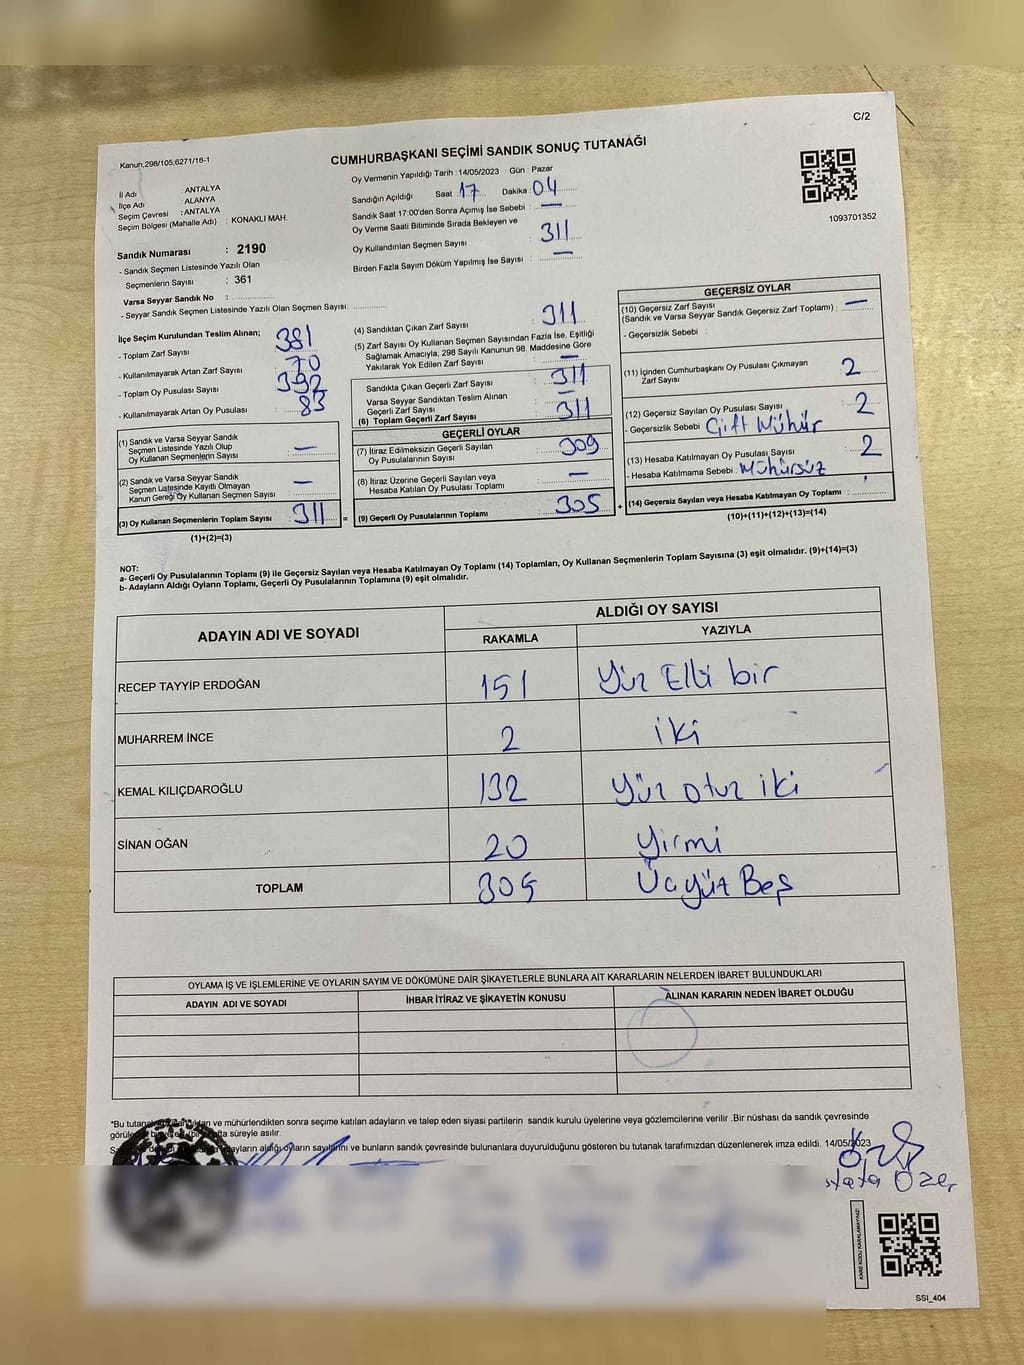 C/2
Kanun;298/105,6271/18-1
CUMHURBAŞKANI SEÇİMİ SANDIK SONUÇ TUTANAĞI
İl Adı : ANTALYA
İlçe Adı : ALANYA
Seçim Çevresi : ANTALYA
Seçim Bölgesi (Mahalle Adı) : KONAKLI MAH.
Sandık Numarası : 2190
- Sandık Seçmen Listesinde Yazılı Olan
Seçmenlerin Sayısı : 361
Varsa Seyyar Sandık No :
- Seyyar Seçmen Listesinde Yazılı Olan Seçmen Sayısı:
Oy Vermenin Yapıldığı Tarih : 14/05/2023 Gün : Pazar
Sandığın Açıldığı Saat : 17 Dakika : 04
Sandık Saat 17:00'den Sonra Açmış İse Sebebi : —
Oy Verme Saati Bitiminde Sırada Bekleyen ve
Oy Kullandırılan Seçmen Sayısı 311
Birden Fazla Sayım Döküm Yapılmış İse Sayısı : —
1093701352
İlçe Seçim Kurulundan Teslim Alınan;
- Toplam Zarf Sayısı : 381
- Kullanılmayarak Artan Zarf Sayısı : 70
- Toplam Oy Pusulası Sayısı : 392
- Kullanılmayarak Artan Oy Pusulası : 83
(1) Sandık ve Varsa Seyyar Sandık
Seçmen Listesinde Yazılı Olup
Oy Kullanan Seçmenlerin Sayısı : —
(2) Sandık ve Varsa Seyyar Sandık
Seçmen Listesinde Kayıtlı Olmayan
Kanun Gereği Oy Kullanan Seçmen Sayısı : —
(3) Oy Kullanan Seçmenlerin Toplam Sayısı : 311 =
(1)+(2)=(3)
(4) Sandıktan Çıkan Zarf Sayısı : 311
(5) Zarf Sayısı Oy Kullanan Seçmen Sayısından Fazla İse, Eşitliği
Sağlamak Amacıyla, 298 Sayılı Kanunun 98. Maddesine Göre
Yakılarak Yok Edilen Zarf Sayısı : —
Sandıkta Çıkan Geçerli Zarf Sayısı : 311
Varsa Seyyar Sandıktan Teslim Alınan
Geçerli Zarf Sayısı : —
(6) Toplam Geçerli Zarf Sayısı : 311
GEÇERLİ OYLAR
(7) İtiraz Edilmeksizin Geçerli Sayılan
Oy Pusulalarının Sayısı : 309
(8) İtiraz Üzerine Geçerli Sayılan veya
Hesaba Katılan Oy Pusulası Toplamı : —
(9) Geçerli Oy Pusulalarının Toplamı : 305 +
GEÇERSİZ OYLAR
(10) Geçersiz Zarf Sayısı
(Sandık ve Varsa Seyyar Sandık Geçersiz Zarf Toplamı) : —
- Geçersizlik Sebebi :
(11) İçinden Cumhurbaşkanı Oy Pusulası Çıkmayan
Zarf Sayısı : 2
(12) Geçersiz Sayılan Oy Pusulası Sayısı : 2
- Geçersizlik Sebebi Çift Mühür
(13) Hesaba Katılmayan Oy Pusulası Sayısı : 2
- Hesaba Katılmama Sebebi : Mühürsüz
(14) Geçersiz Sayılan veya Hesaba Katılmayan Oy Toplamı :
(10)+(11)+(12)+(13)=(14)
NOT:
a- Geçerli Oy Pusulalarının Toplamı (9) ile Geçersiz Sayılan veya Hesaba Katılmayan Oy Toplamı (14) Toplamları, Oy Kullanan Seçmenlerin Toplam Sayısına (3) eşit olmalıdır. (9)+(14)=(3)
b- Adayların Aldığı Oyların Toplamı, Geçerli Oy Pusulalarının Toplamına (9) eşit olmalıdır.
ADAYIN ADI VE SOYADI ALDIĞI OY SAYISI
RAKAMLA YAZIYLA
RECEP TAYYİP ERDOĞAN 151 Yüz Elli bir
MUHARREM İNCE 2 iki
KEMAL KILIÇDAROĞLU 132 Yüz otuz iki
SİNAN OĞAN 20 Yirmi
TOPLAM 305 Üçyüz Beş
OYLAMA İŞ VE İŞLEMLERİNE VE OYLARIN SAYIM VE DÖKÜMÜNE DAİR ŞİKAYETLERLE BUNLARA AİT KARARLARIN NELERDEN İBARET BULUNDUKLARI
ADAYIN ADI VE SOYADI İHBAR İTİRAZ VE ŞİKAYETİN KONUSU ALINAN KARARIN NEDEN İBARET OLDUĞU
*Bu ve mühürlendikten sonra seçime katılan adayların ve talep eden siyasi partilerin sandık kurulu üyelerine veya gözlemcilerine verilir .Bir nüshası da sandık çevresinde
süreyle asılır.
aldığı oyların sayılarını ve bunların sandık çevresinde bulunanlara duyurulduğunu gösteren bu tutanak tarafımızdan düzenlenerek imza edildi. 14/05/2023
Özer
KARE KODU KARALAMAYINIZ!
SSI_404